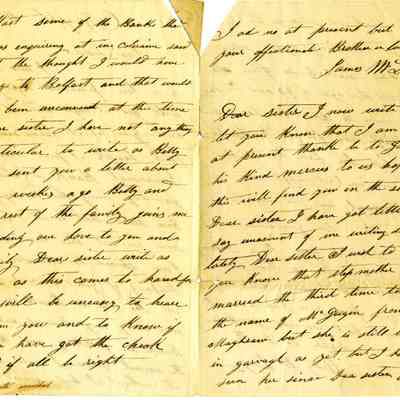 fast some of the Banks the
enquiring at in Colraine
the thought I would have
go to Belfast and that would
been at the time
sister I have not any thing
particular to write as Betty
sent you a letter about
weeks ago Betty and
rest of the family joins me
sending our love to you and
Dear sister write as
as this comes to hand for
will be uneasy to hear
you and to know if
have got the cheak
if all be right
I ad no at present but
your affectionate Brother in law
James Mc
Dear Sister I now write
let you know that I am
at present thank be to G
his kind mercies to us hop
this will find you in the s
Dear sister I have got
say of me writing
lately Dear sister I wish to
you know that stepmother
married the third time to
the name of McGuigin from
but she is still
in garvagh as yet but I h
seen her since Dear sister